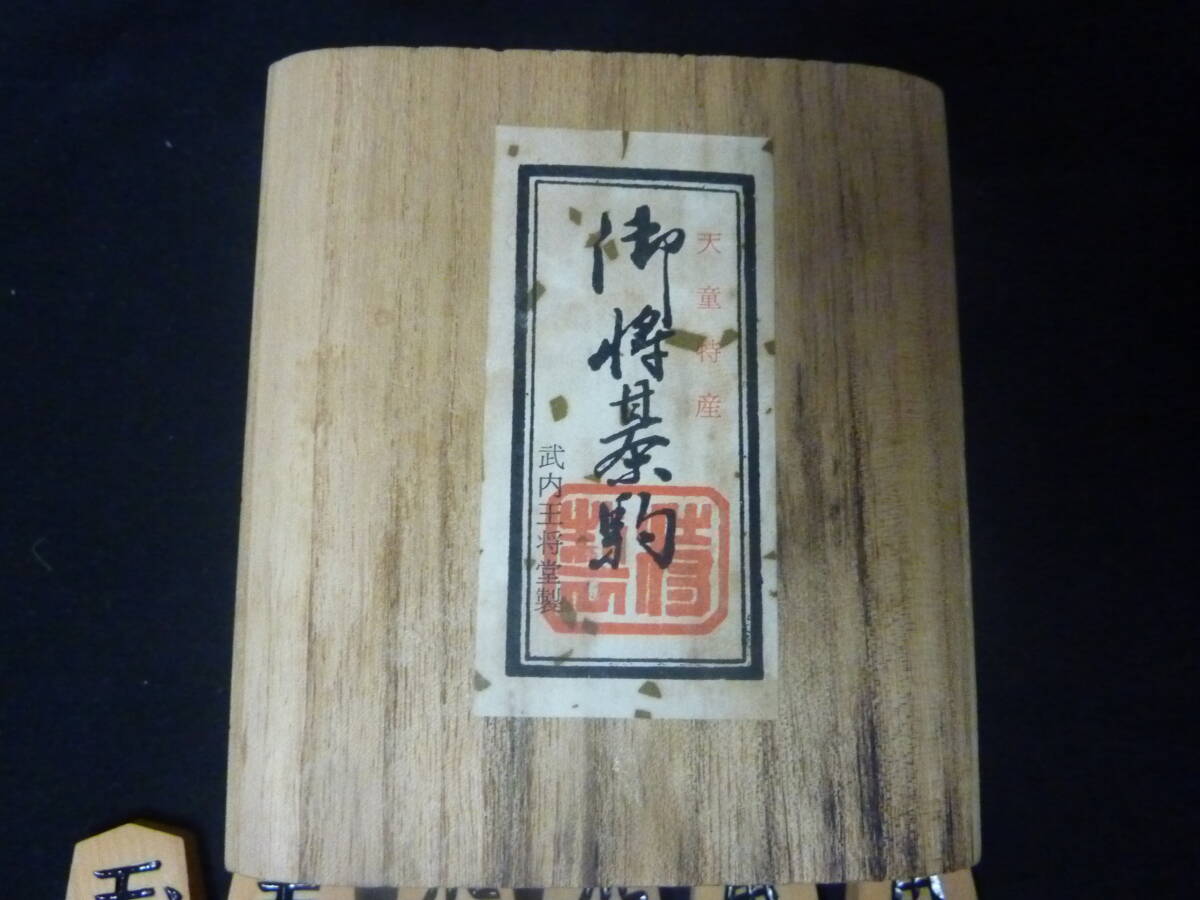 天童特産
御将棊駒
武内王将堂製
特製
玉